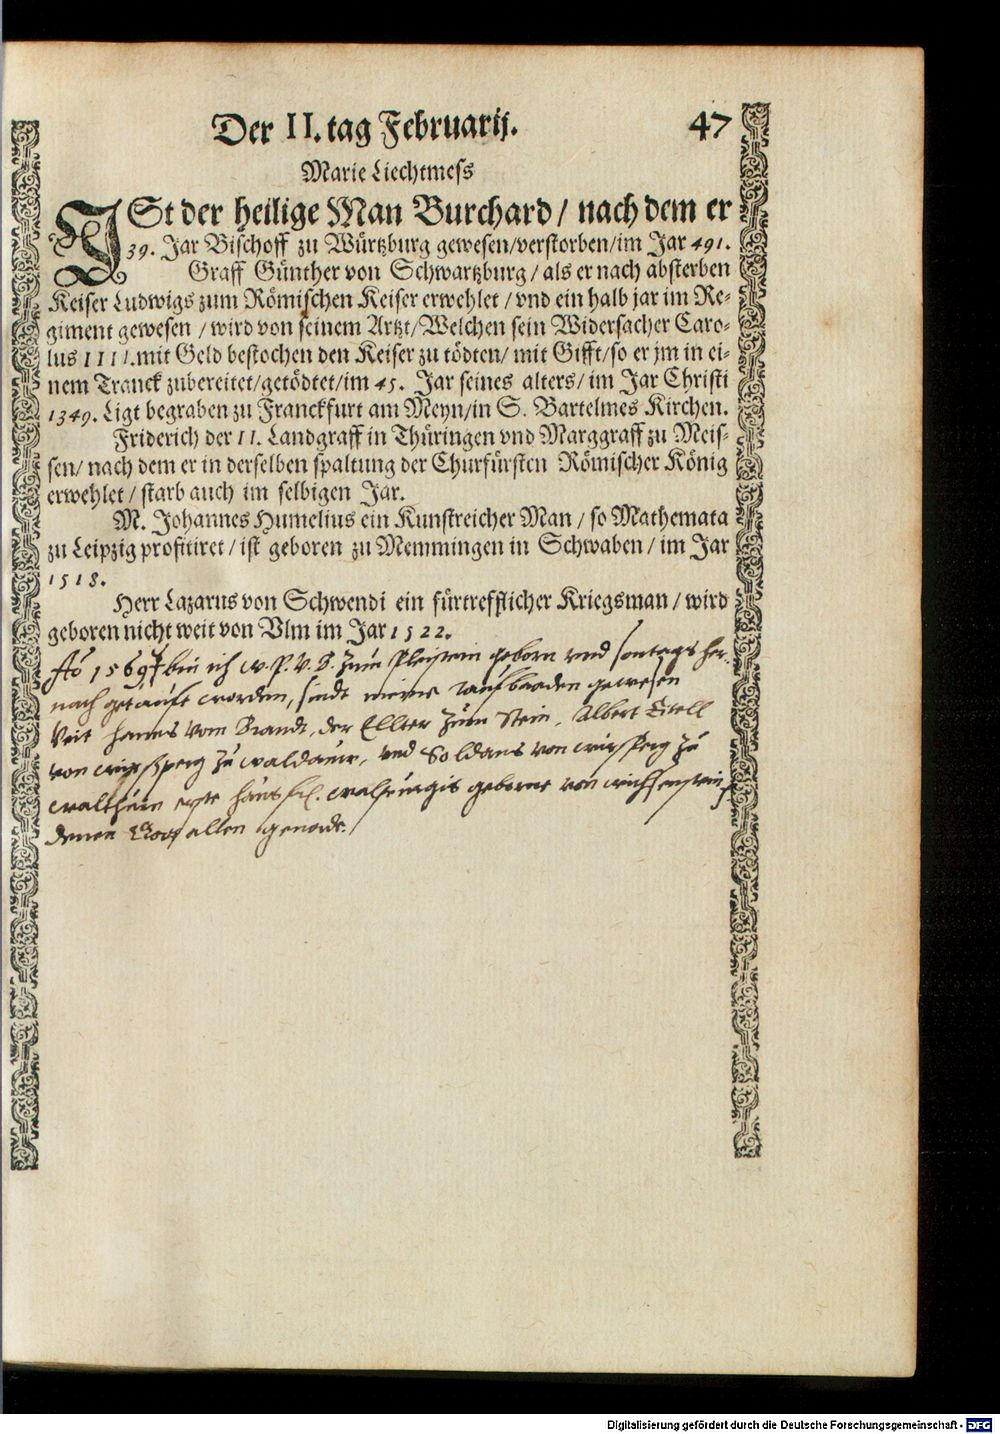 Der II. tag Februarij. 47
Marie Liechtmess
ISt der heilige Man Burchard / nach dem er
39. Jar Bischoff zu Würtzburg gewesen/verstorben/im Jar 491.
Graff Günther von Schwartzburg / als er nach absterben
Keiser Ludwigs zum Römischen Keiser erwehlet / vnd ein halb jar im Re-
giment gewesen / wird von seinem Artzt/Welchen sein Widersacher Caro-
lus IIII. mit Geld bestochen den Keiser zu tödten/ mit Gifft/so er jm in ei-
nem Tranck zubereitet/getödtet/im 45. Jar seines alters/ im Jar Christi
1349. Ligt begraben zu Franckfurt am Meyn/in S. Bartelmes Kirchen.
Friderich der II. Landgraff in Thüringen vnd Marggraff zu Meis-
sen/ nach dem er in derselben spaltung der Churfürsten Römischer König
erwehlet / starb auch im selbigen Jar.
M. Johannes Humelius ein Kunstreicher Man / so Mathemata
zu Leipzig profitiret / ist geboren zu Memmingen in Schwaben / im Jar
1518.
Herr Lazarus von Schwendi ein fürtrefflicher Kriegsman / wird
geboren nicht weit von Vlm im Jar 1522.
Ao 1569 bin ich W. P. V. B. zum Pleistein geborn vnd sontags her-
nach getauft worden, sindt meine gewesen
Veit Hanns vom Brandt, der Ellter zum Stein, Albert
von zu waldaur, vnd Soldans von zu
geborne von
denen allen genade.
Digitalisierung gefördert durch die Deutsche Forschungsgemeinschaft - DFG